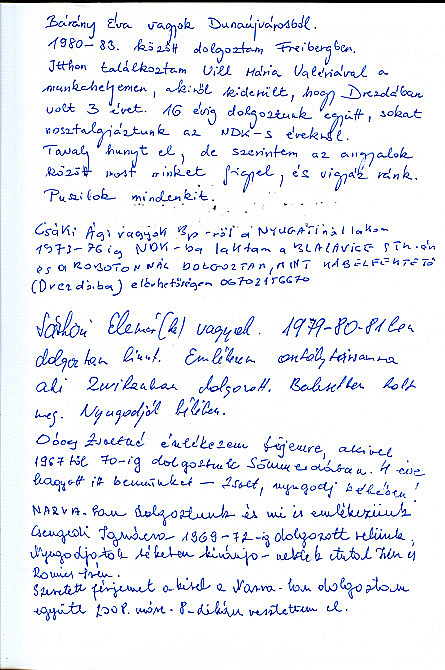 Bárány Éva vagyok Dunaújvárosból.
1980-83. között dolgoztam Freibergben.
Itthon találkoztam Vill Mária Valériával a
munkahelyemen, akiről kiderült, hogy Drezdában
volt 3 évet. 16 évig dolgoztunk együtt, sokat
nosztalgiáztunk az NDK-s évekről.
Tavaly hunyt el, de szerintem az angyalok
között most minket figyel, és vigyáz ránk.
Puszilok mindenkit.
Csáki Ági vagyok Bp-ről a NYUGATINÁL lakom
1973-76 ig NDK-ba laktam a BLALAVICE STR.-on
és a ROBOTONNÁL DOLGOZTAM, MINT KÁBELFEKTETŐ
(Drezdába) elérhetőségem 06702156670
vagyok. 1979-80-81 ben
dolgoztam kinnt. Emlékem osztálytársamra
aki Zwikauban dolgozott. Balesetben holt
meg. Nyugodjék békében.
Zsoltné emlékezem férjemre, akivel
1967 től 70-ig dolgoztunk Sömmerdában. 4 éve
hagyott itt bennünket – Zsolt, nyugodj békében!
NARVA-ban dolgoztunk és mi is emlékezünk
Csengedi Ignácra 1969-72-ig dolgozott velünk,
Nyugodjatok békében kívánja
Irén.
Szeretett férjemet akivel a Narva-ban dolgoztam
együtt 2008. márc. 8-dikán vesztettem el.